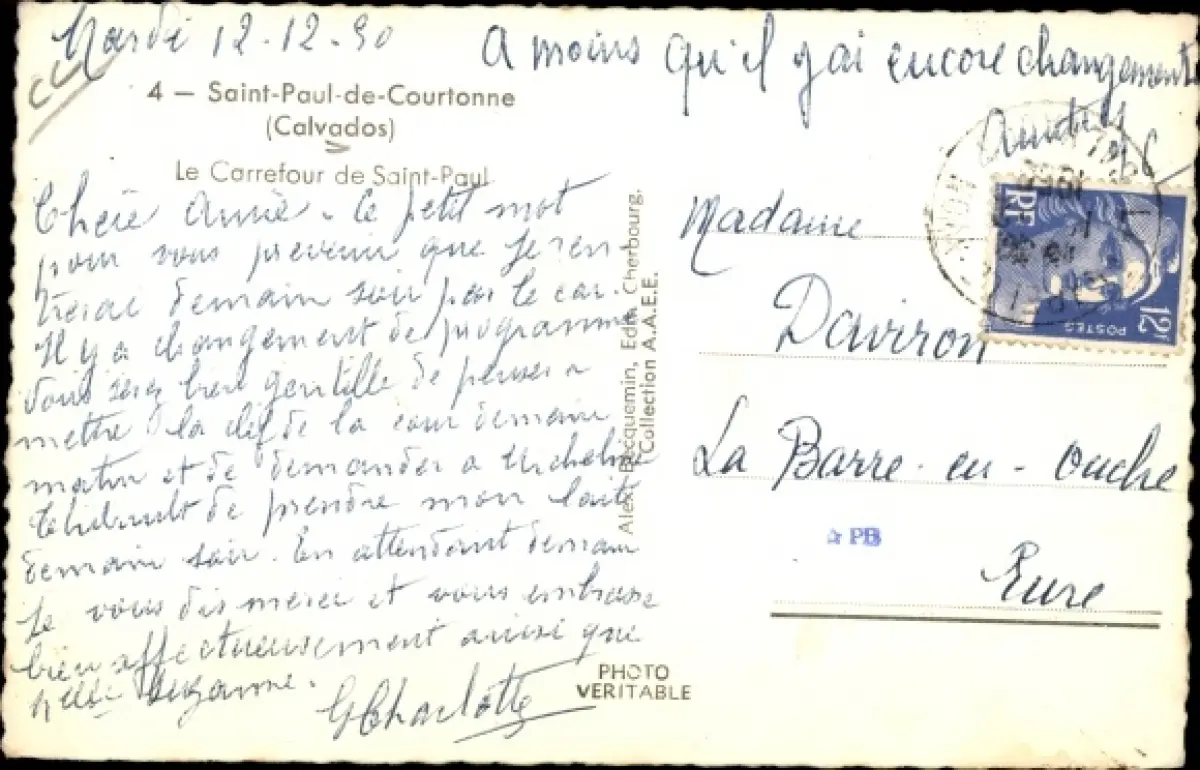 Mardi 12.12.50
A moins qu'il y ai encore changement
4 — Saint-Paul-de-Courtonne
(Calvados)
Le Carrefour de Saint-Paul
Chère Amie. Ce petit mot
pour vous prevenir que je ren
trerai demain soir par le car.
Il y a changement de programme
Vous serez bien gentille de penser a
mettre la clef de la cour demain
matin et de demander a Micheline
Thibault de prendre mon lait
demain soir. En attendant demain
Je vous dis merci et vous embrasse
bien affectueusement ainsi que
Melle Suzanne.
GCharlotte
Alex. Jacquemin, Edit. Cherbourg.
Collection A.A.E.E.
PHOTO
VERITABLE
RF
POSTES
12F
Madame
Daviron
La Barre-en-Ouche
PB
Eure